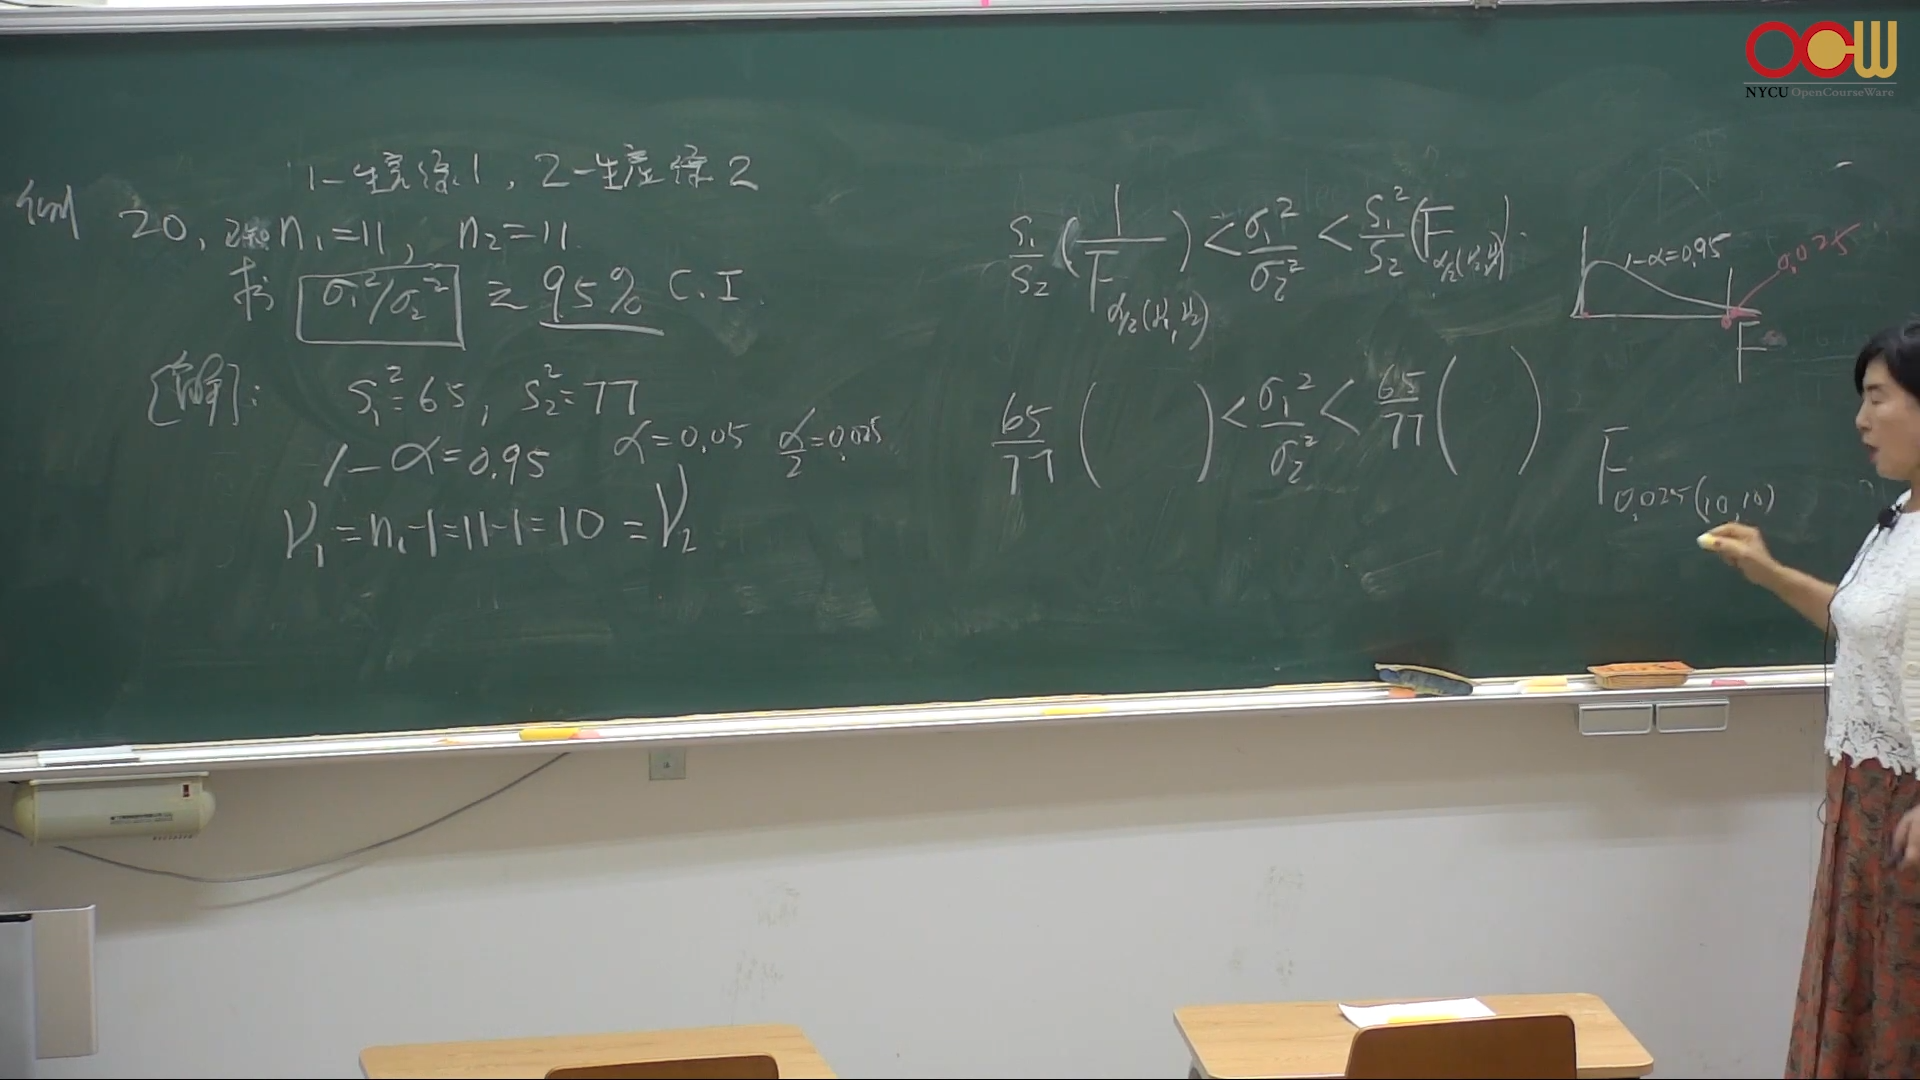 OCW
NYCU OpenCourseWare
1-生產線1, 2-生產線2
例 20, 已知 n₁=11, n₂=11
求 σ₁²/σ₂² 之 95% C.I.
[解]: S₁²=65, S₂²=77
1-α=0.95 α=0.05 α/2=0.025
ν₁=n₁-1=11-1=10=ν₂
S₁/S₂ (1/F α/2(ν₁,ν₂)) < σ₁²/σ₂² < S₁²/S₂ (F α/2(ν₂,ν₁))
65/77 ( ) < σ₁²/σ₂² < 65/77 ( )
1-α=0.95
0.025
F
F 0.025(10,10)